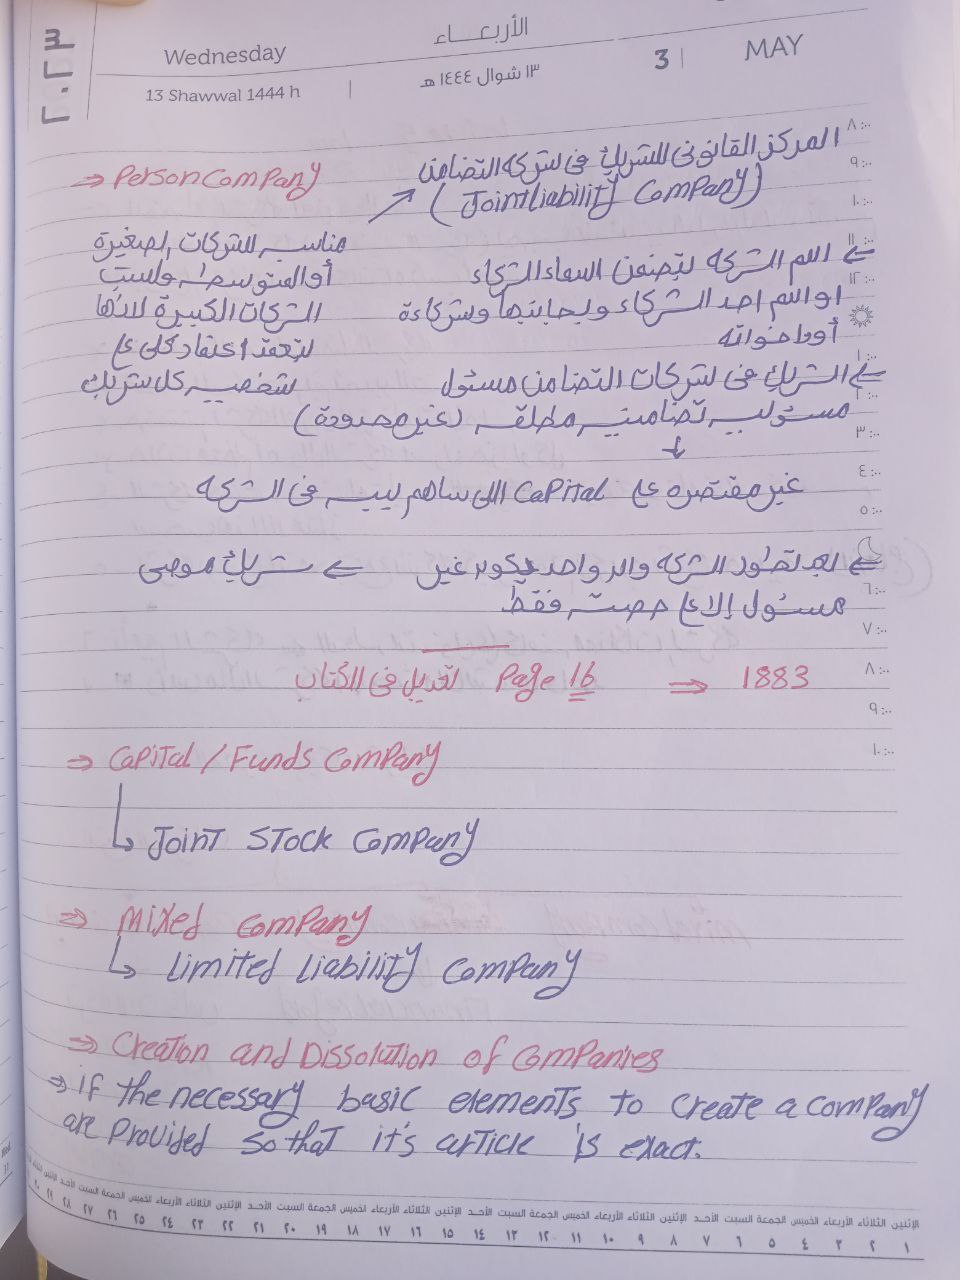 ٢٠٢٣
Wednesday
الأربعــاء
3 | MAY
13 Shawwal 1444 h
١٣ شوال ١٤٤٤ هـ
المركز القانونى للشريك فى شركه التضامن
⇒ Person Company
(Joint liability Company)
مناسبه للشركات الصغيرة
أو المتوسطه وليست
الشركات الكبيرة لانها
تعتمد اعتماد كلى على
شخصيه كل شريك
⇐ اسم الشركه يتضمن اسماء الشركاء
او اسم احد الشركاء وبجانبها وشركاءة
أو اخواته
⇐ الشريك فى شركات التضامن مسئول
مسئوليه تضامنيه مطلقه (غير محدودة)
↓
غير مقتصره على Capital اللى ساهم بيه فى الشركه
⇐ بعد تطور الشركه والد واحد يكون غير ⇐ شريك موصى
مسئول إلا على حصته فقط
1883 ⇒ Page 16 تعديل فى الكتاب
⇒ Capital / Funds Company
↳ Joint Stock Company
⇒ Mixed Company
↳ Limited liability Company
⇒ Creation and Dissolution of Companies
⇒ if the necessary basic elements to create a company
are Provided so that it's article is exact.
٨:٠٠
٩:٠٠
١٠:٠٠
١١:٠٠
١٢:٠٠
١:٠٠
٢:٠٠
٣:٠٠
٤:٠٠
٥:٠٠
٦:٠٠
٧:٠٠
٨:٠٠
٩:٠٠
١٠:٠٠
الإثنين الثلاثاء الأربعاء الخميس الجمعة السبت الأحـد الإثنين الثلاثاء الأربعاء الخميس الجمعة السبت الأحـد الإثنين الثلاثاء الأربعاء الخميس الجمعة السبت الأحـد الإثنين الثلاثاء الأربعاء الخميس الجمعة السبت الأحـد الإثنين
١ ٢ ٣ ٤ ٥ ٦ ٧ ٨ ٩ ١٠ ١١ ١٢ ١٣ ١٤ ١٥ ١٦ ١٧ ١٨ ١٩ ٢٠ ٢١ ٢٢ ٢٣ ٢٤ ٢٥ ٢٦ ٢٧ ٢٨ ٢٩